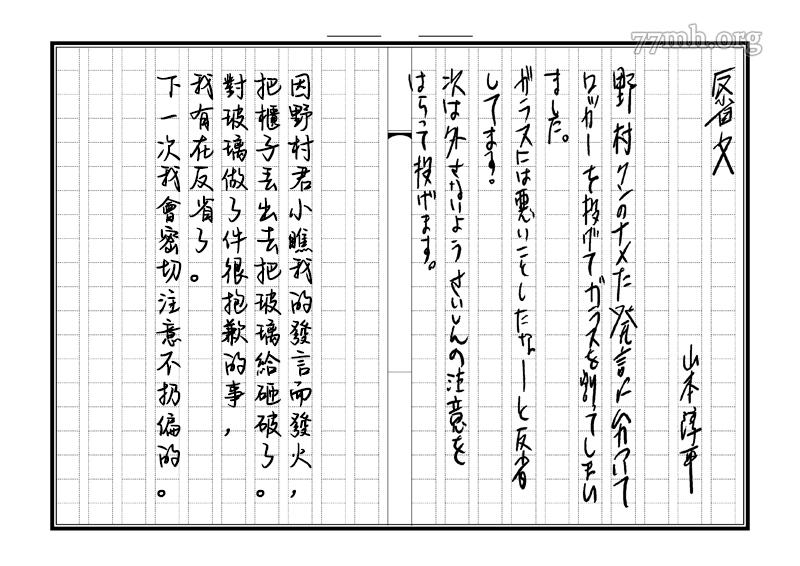 77mh.org
反省文
山本淳平
野村クンのナメた発言にムカついて
ロッカーを投げてガラスを割ってしまい
ました。
ガラスには悪いことしたなーと反省
してます。
次は外さないようさいしんの注意を
はらって投げます。
因野村君小瞧我的發言而發火，
把櫃子丟出去把玻璃給砸破了。
對玻璃做了件很抱歉的事，
我有在反省了。
下一次我會密切注意不扔偏的。